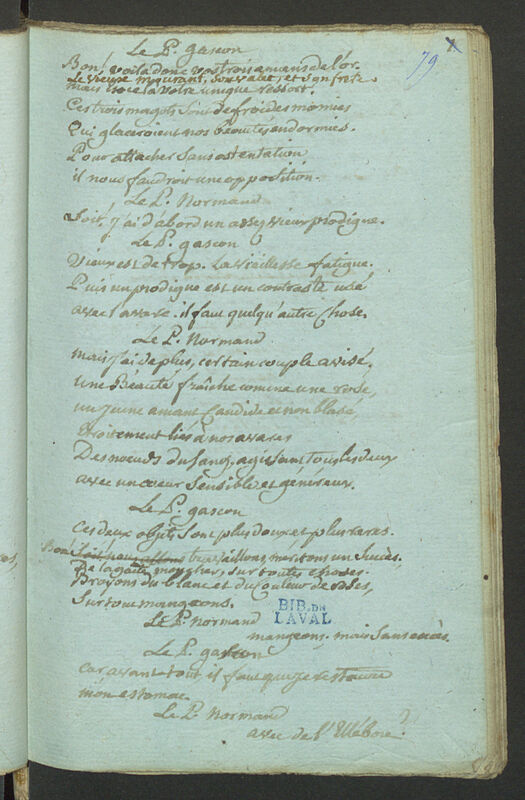 79
Le P. gascon
Bon! voila donc vos trois amans de l'or.
Le vieux mourant, son valet, et son frere
mais est ce la votre unique ressort.
Ces trois magots sont de froides momies
Qui glaceroient nos beautés endormies.
Pour attacher sans ostentation
il nous faudroit une opposition.
Le P. Normand
Soit. j'ai d'abord un assez vieux prodigue.
Le P. gascon
Vieux est de trop. La vieillesse fatigue.
Puis un prodigue est un contraste usé
avec l'avare. il faut quelqu'autre chose.
Le P. Normand
mais j'ai de plus, certain couple avisé.
Une Beauté fraîche comme une rose,
un jeune amant candide et non blasé,
Etroitement liés a nos avares
Des noeuds du sang, agissant tous les deux
avec un coeur sensible et généreux.
Le P. gascon
Ces deux objets sont plus doux et plus rares.
Bon! travaillons, meritons un succès.
De la gaité, mon cher, sur toutes choses.
Broyons du blanc et du couleur de roses,
Surtout mangeons.
Le P. normand
mangeons. mais sans excès.
Le P. gascon
Car avant tout il faut que je restaure
mon estomac
Le P. Normand
avec de l'Ellébore?
BIB. DE
LAVAL